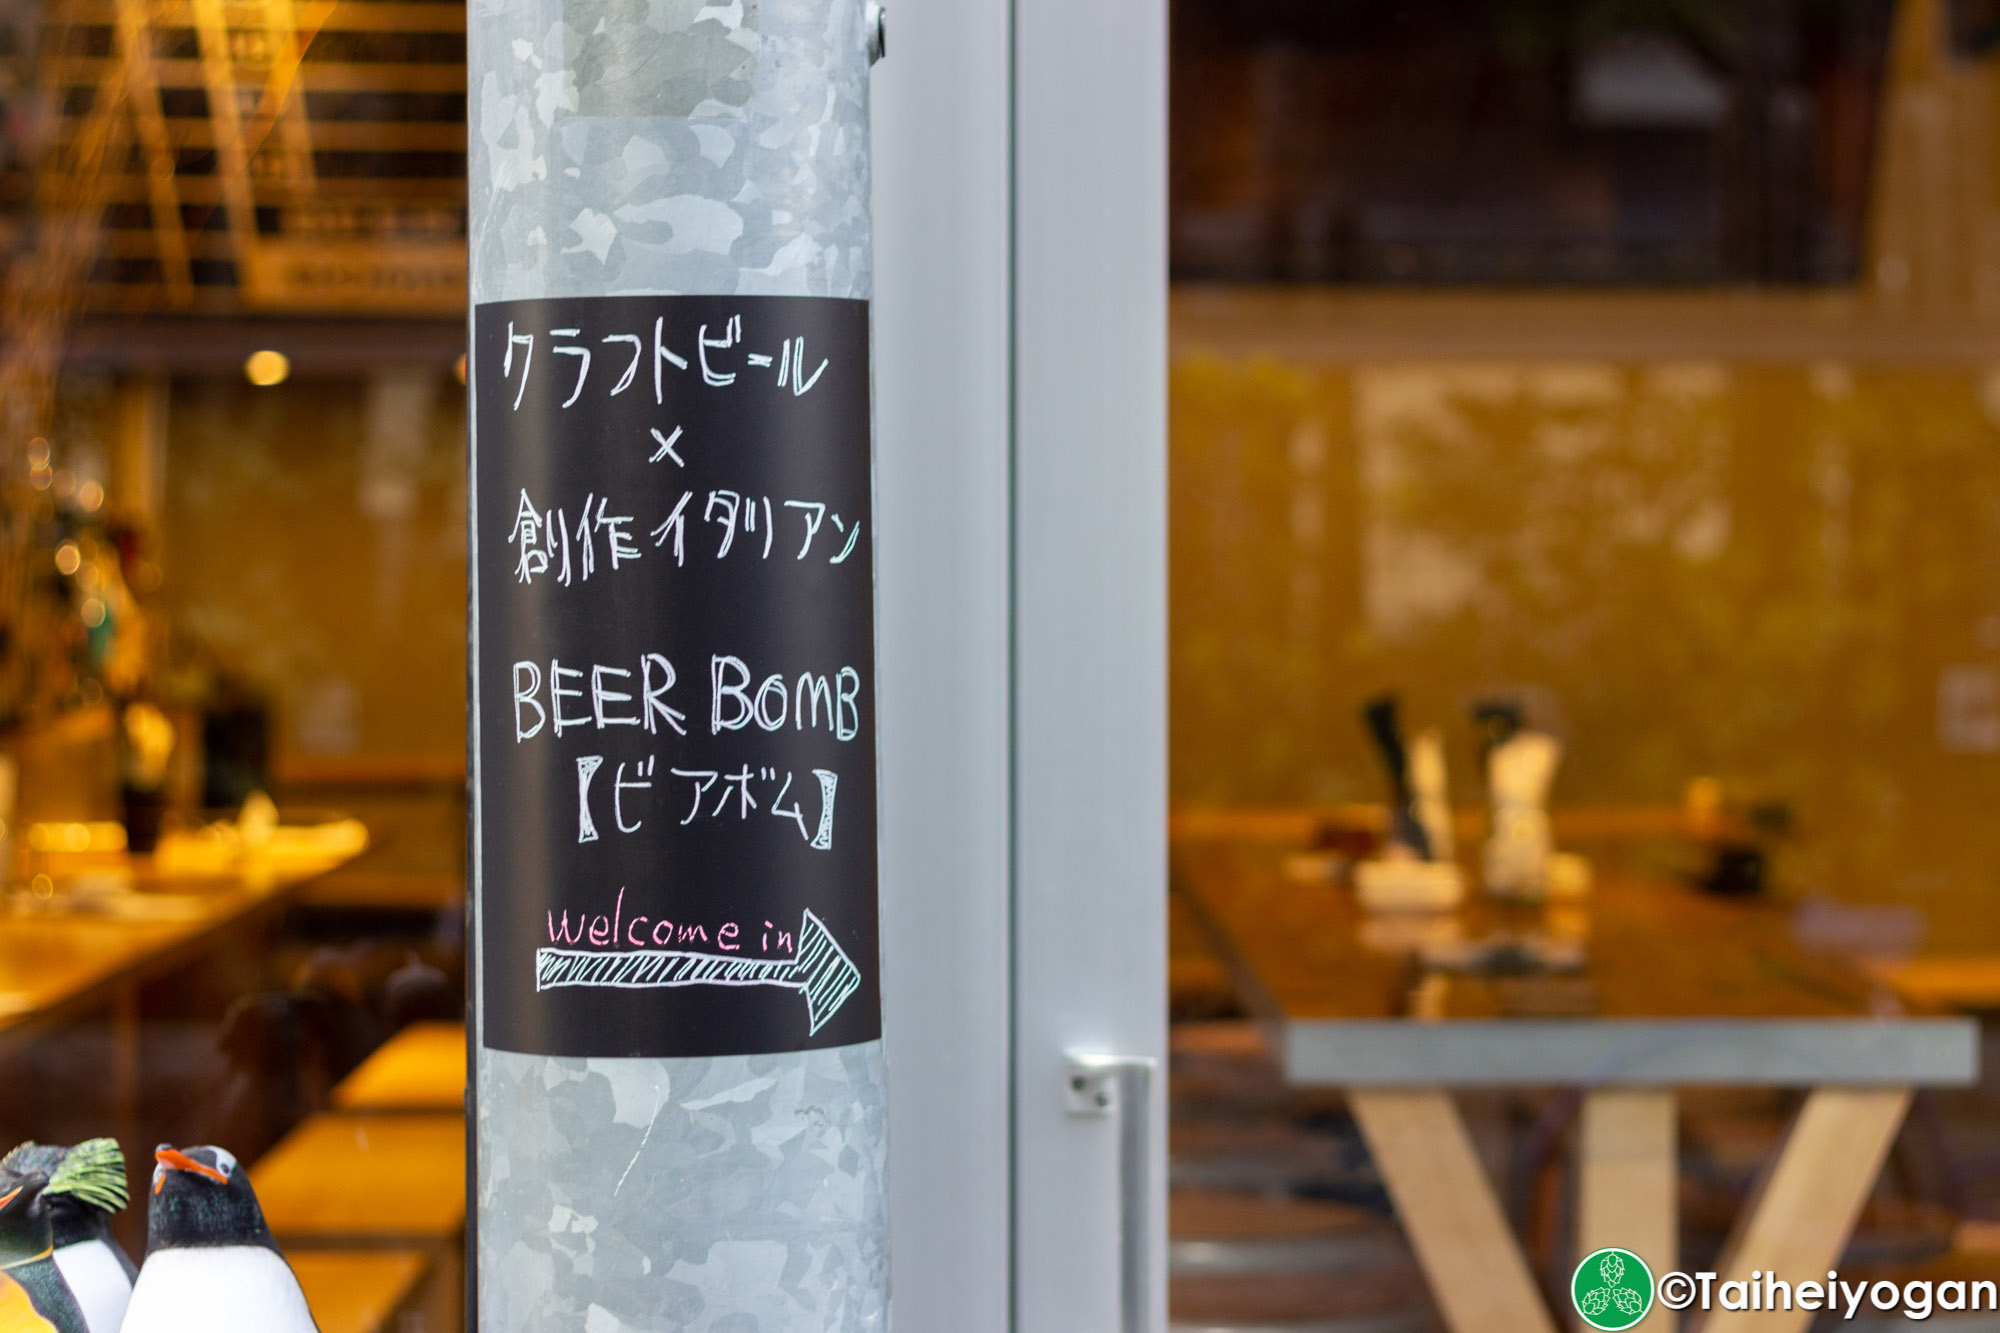 クラフトビール
×
創作イタリアン
BEER BOMB
【ビアボム】
welcome in
©Taiheiyogan